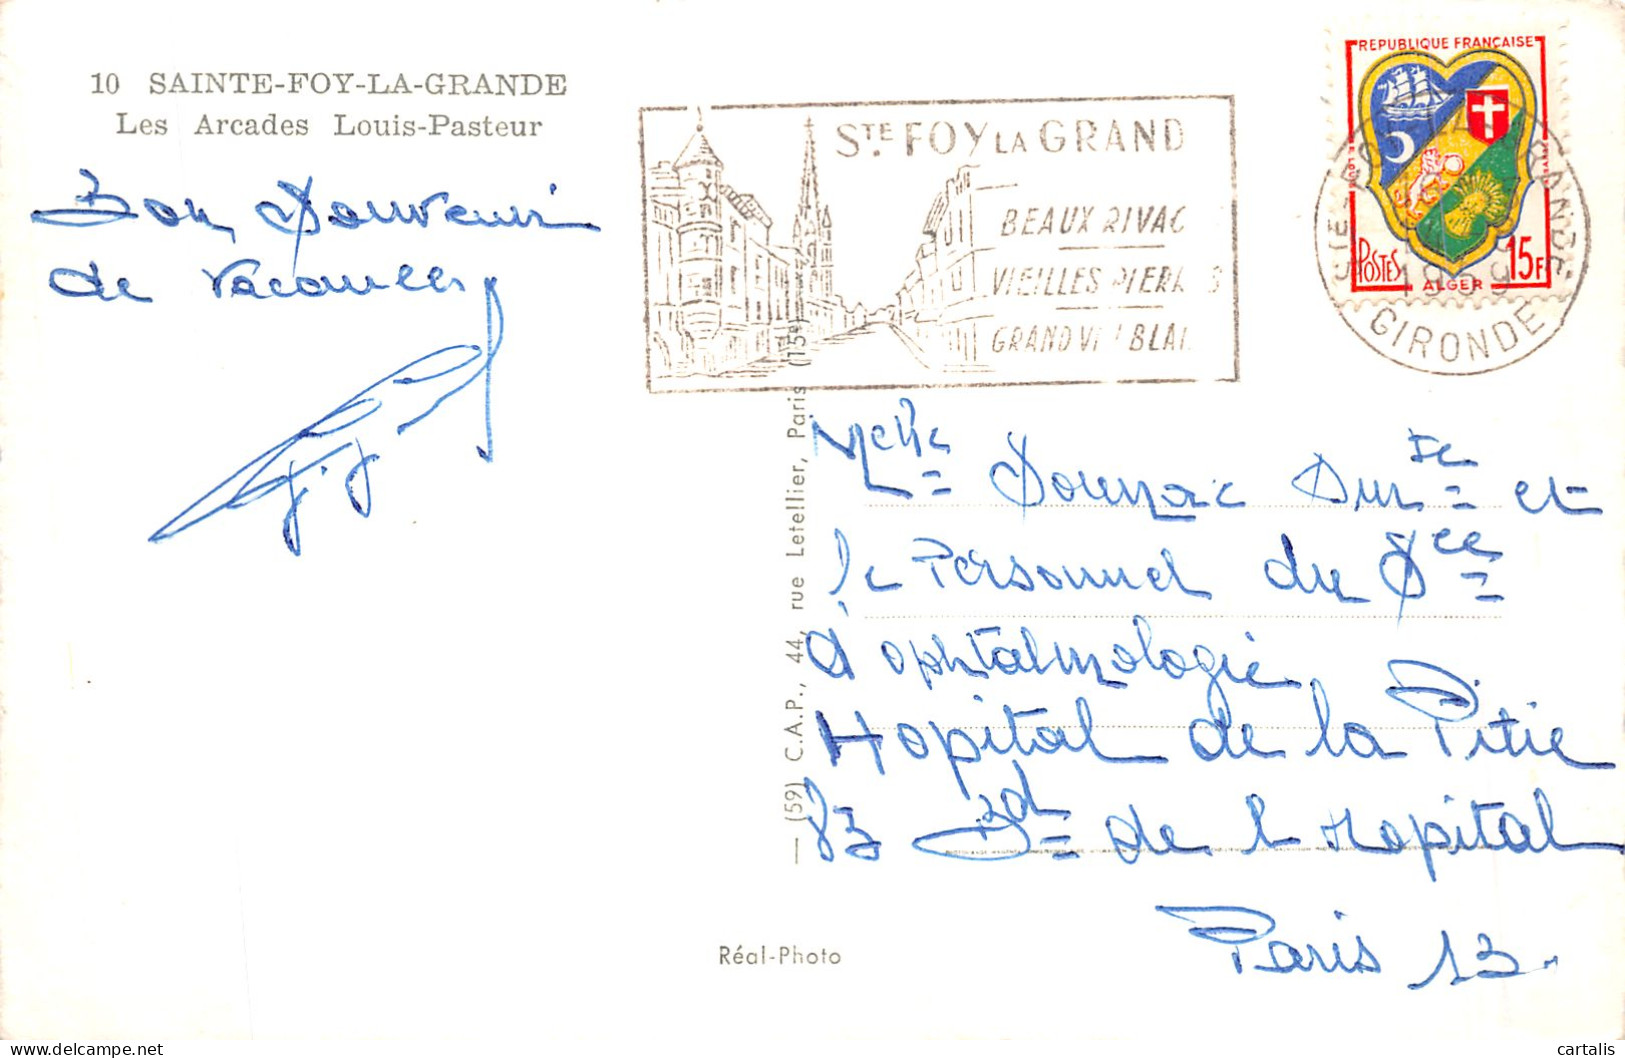 10 SAINTE-FOY-LA-GRANDE
Les Arcades Louis-Pasteur
Bon Souvenir
de Vacances
STE FOY LA GRAND
BEAUX RIVAG
VIEILLES PIERR S
GRAND VI BLAN
REPUBLIQUE FRANÇAISE
POSTES 15F
ALGER
STE-FOY-LA-GRANDE
1959
GIRONDE
(59) C.A.P., 44, rue Letellier, Paris (15e)
Melle et
le Personnel du Sce
d'ophtalmologie
Hopital de la Pitie
83 Bd de l Hopital
Paris 13.
Réal-Photo
cartalis